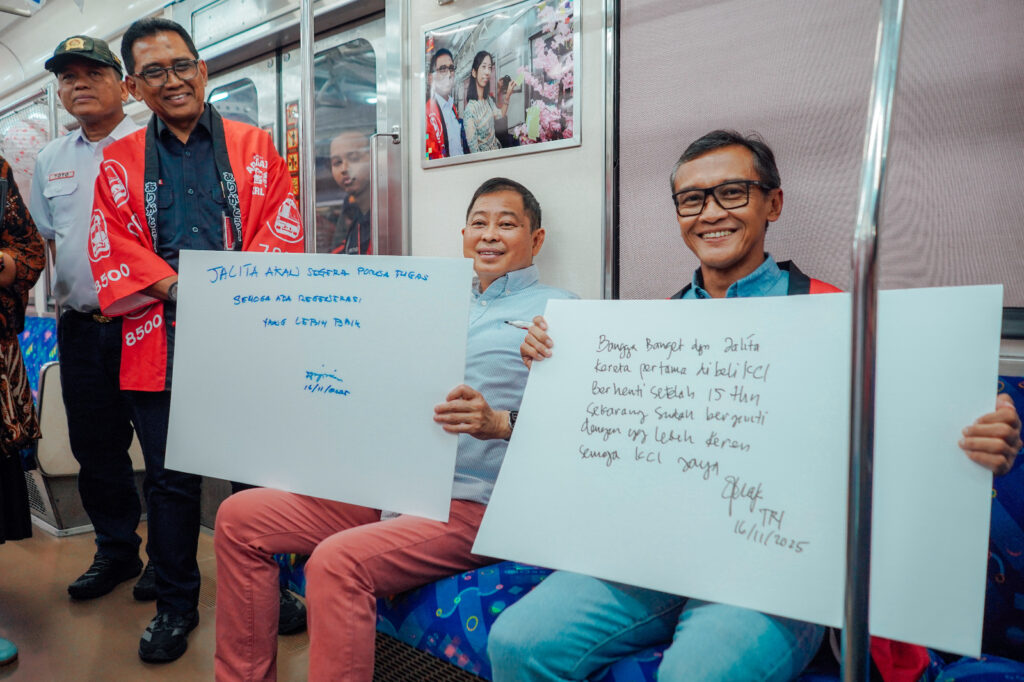 TOTO
8500
8500
JALITA AKAN SEGERA PURNA TUGAS
SEMOGA ADA REGENERASI
YANG LEBIH BAIK
16/11/2025
Bangga Banget dgn Jalita
Kereta pertama dibeli KCI
Berhenti setelah 15 thn
Sekarang sudah berganti
dengan yg lebih keren
semoga KCI Jaya
16/11/2025